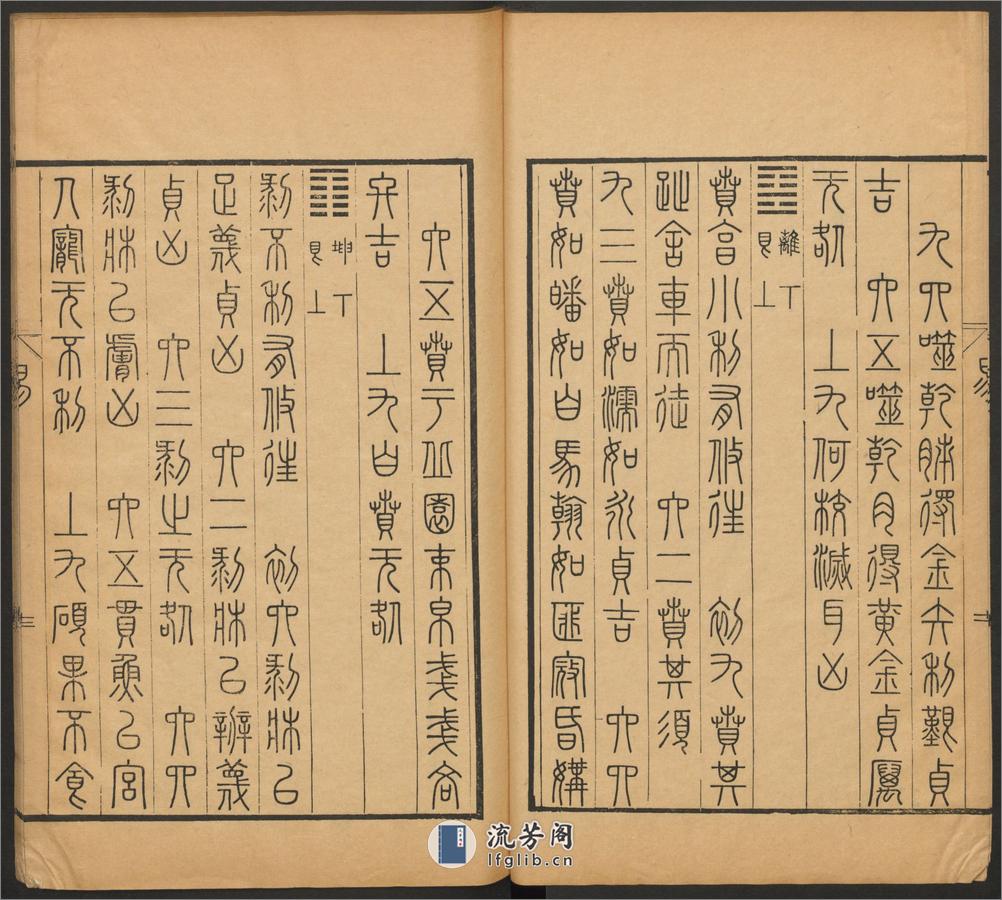 九四噬乾胏得金矢利艱貞
吉　六五噬乾肉得黃金貞厲
无咎　上九何校滅耳凶
䷕ 離下 艮上
賁亨小利有攸往　初九賁其
趾舍車而徒　六二賁其須
九三賁如濡如永貞吉　六四
賁如皤如白馬翰如匪寇昏媾
六五賁于丘園束帛戔戔吝
終吉　上九白賁无咎
䷖ 坤下 艮上
剝不利有攸往　初六剝牀以
足蔑貞凶　六二剝牀以辨蔑
貞凶　六三剝之无咎　六四
剝牀以膚凶　六五貫魚以宮
人寵无不利　上九碩果不食
易
流芳阁
lfglib.cn